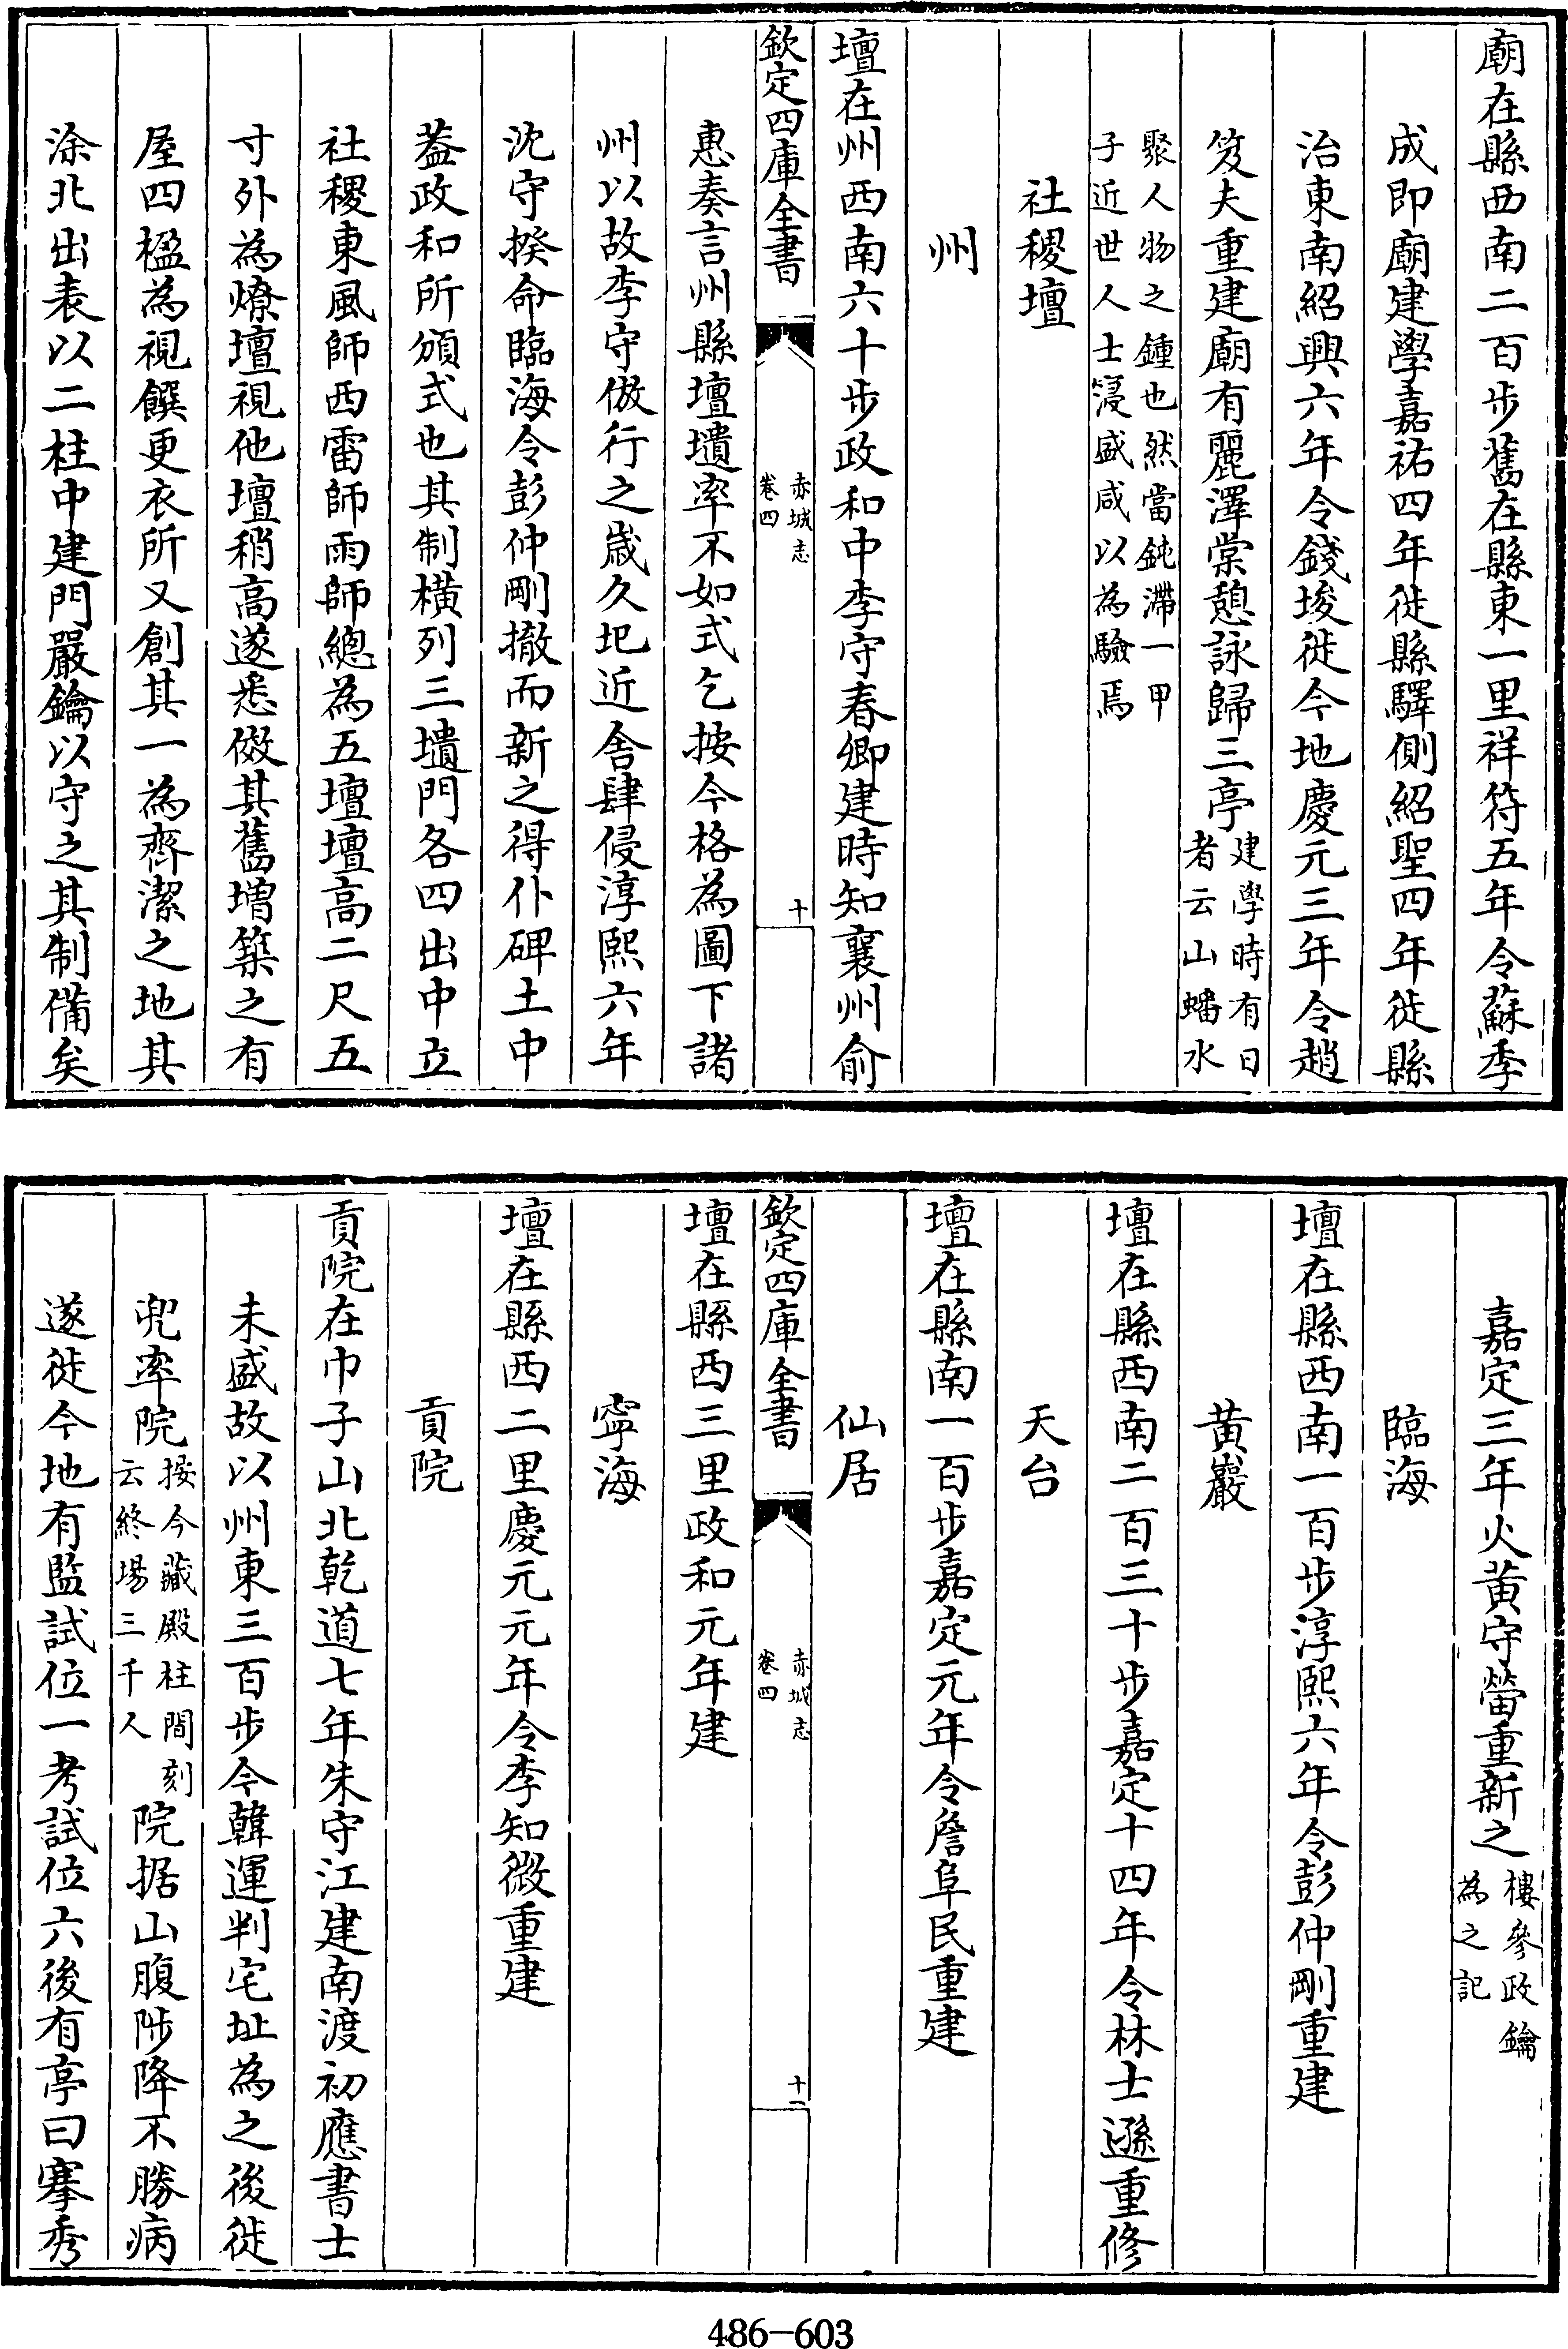 廟在縣西南二百步舊在縣東一里祥符五年令蘇季
成即廟建學嘉祐四年徙縣驛側紹聖四年徙縣
治東南紹興六年令錢埈徙今地慶元三年令趙
笈夫重建廟有麗澤棠憩詠歸三亭建學時有日
者云山蟠水
聚人物之鍾也然當鈍滯一甲
子近世人士寖盛咸以為驗焉
社稷壇
州
壇在州西南六十步政和中李守春卿建時知襄州俞
欽定四庫全書
赤城志
卷四
十
惠奏言州縣壇壝率不如式乞按今格為圖下諸
州以故李守倣行之歲久圯近舍肆侵淳熙六年
沈守揆命臨海令彭仲剛撤而新之得仆碑土中
葢政和所頒式也其制橫列三壝門各四出中立
社稷東風師西雷師雨師總為五壇壇高二尺五
寸外為燎壇視他壇稍高遂悉倣其舊増築之有
屋四楹為視饌更衣所又創其一為齊潔之地其
涂北出表以二柱中建門嚴鑰以守之其制備矣
嘉定三年火黃守㽦重新之樓參政鑰
為之記
臨海
壇在縣西南一百步淳熙六年令彭仲剛重建
黃巖
壇在縣西南二百三十步嘉定十四年令林士遜重修
天台
壇在縣南一百步嘉定元年令詹阜民重建
仙居
欽定四庫全書
赤城志
卷四
十一
壇在縣西三里政和元年建
寧海
壇在縣西二里慶元元年令李知微重建
貢院
貢院在巾子山北乾道七年朱守江建南渡初應書士
未盛故以州東三百步今韓運判宅址為之後徙
兜率院按今藏殿柱間刻
云終場三千人
院据山腹陟降不勝病
遂徙今地有監試位一考試位六後有亭曰搴秀
486-603